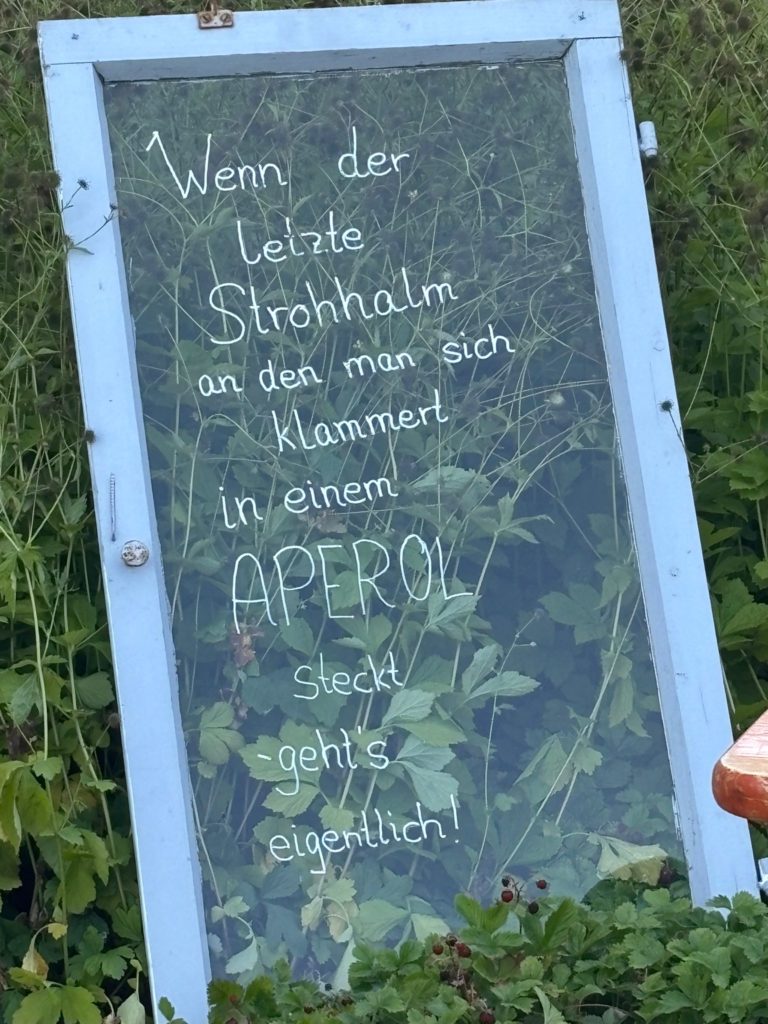 Wenn der
letzte
Strohhalm
an den man sich
klammert
in einem
APEROL
steckt
-geht's
eigentlich!